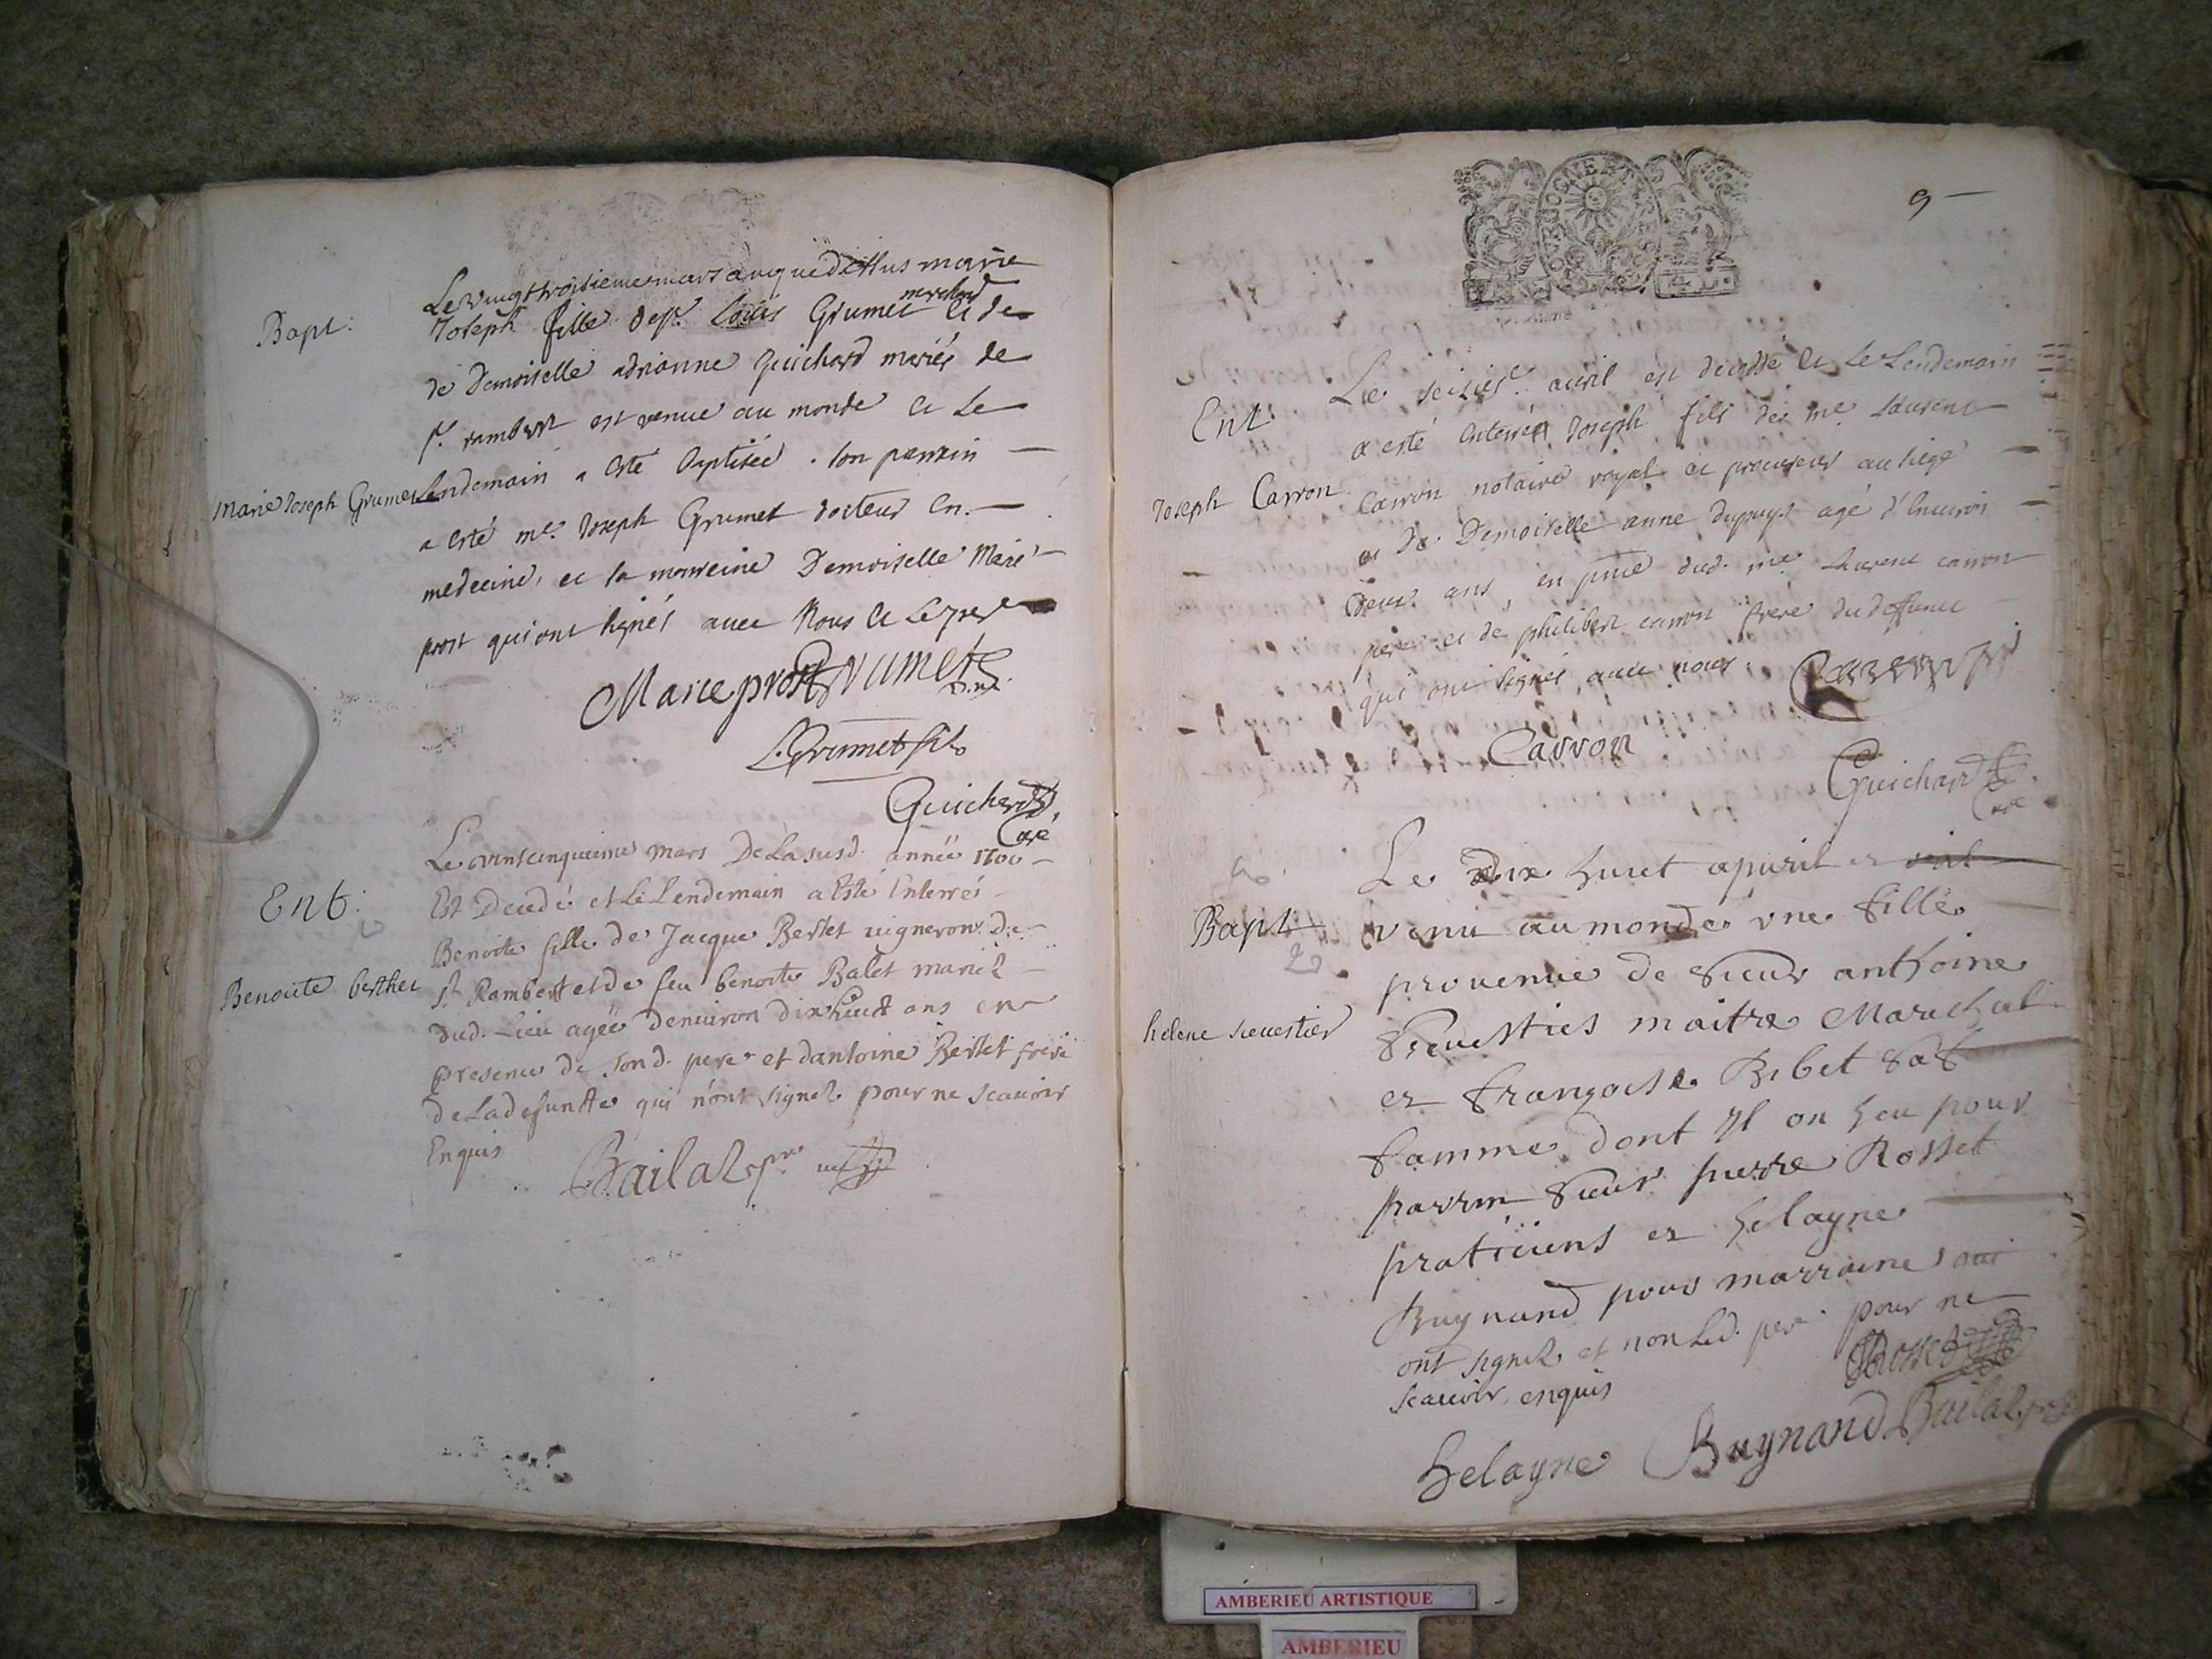 Bapt:
Marie Joseph Grumet
Le vingt troisieme mars an que dessus marie
marchand
Joseph fille de Sr. Loüis Grumet et de
de Demoiselle adrianne Guichard mariés de
St. rambert est venue au monde et Le
Lendemain a esté Baptisée. son parrain
a esté me. Joseph Grumet docteur en
medecine, et sa marreine Demoiselle Marie
prost qui ont signés avec Nous et Le pere
Marie prost Grumet
D. m.
L. Grumet fils
Guichard
Curé
Ent:
Benoite berthet
Le vintcinquieme mars De La susd. année 1700
Est Decedé et Le Lendemain a Esté Enterrés
Benoite fille de Jacque Bertet vigneron de
St Rambert et de feu benoite Balet mariez
dud. Lieu agée denviron dix huict ans en
presence de Sond. pere et dantoine Bertet frere
de La defuncte qui n'ont signez pour ne scauoir
Enquis
Bailat pre vic
9
GNE
Ent:
Joseph Carron
Le seisie. avril est decedé et Le Lendemain
a esté enterré Joseph fils de me. Laurent
Carron notaire royal et procureur au siege
et De Demoiselle anne dupuys agé d'environ
Deux ans, en pnce dud. me. Laurent carron
pere et de philibert carron frere du deffunct
qui ont signés avec nous.
Carron
Carron
Guichard
Curé
Bapt
2
helene sevestier
Le dix huict apvril et
venu au monde une fille
provenue de sieur anthoine
Sevesties maitre Marechal
et françoise Bibet sa
famme dont Il on heu pour
parrin sieur pierre Rosset
praticiens et helayne
Buynand pour marraine qui
ont signez et non led. pere pour ne
scauoir enquis
Rosset
helayne Buynand Bailat pre
AMBERIEU ARTISTIQUE
AMBERIEU